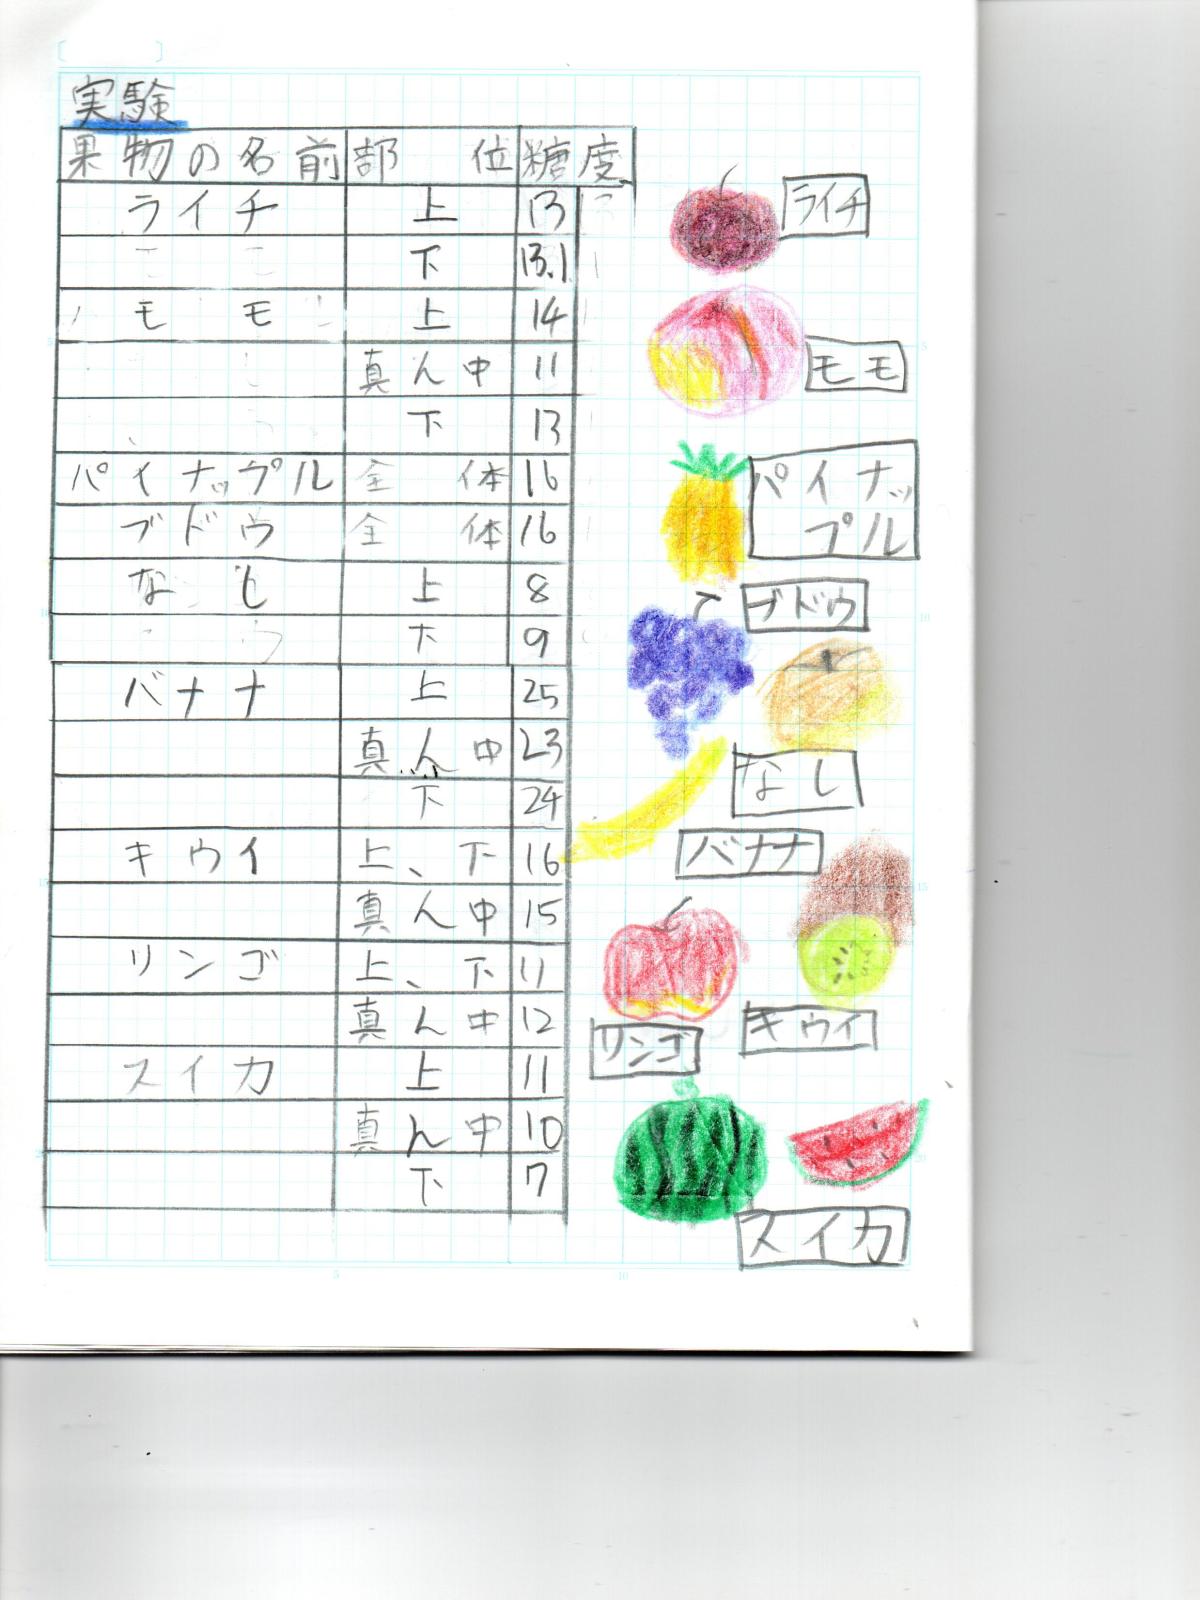 実験
果物の名前 部位 糖度
ライチ 上 13
下 13.1
モモ 上 14
真ん中 11
下 13
パイナップル 全体 16
ブドウ 全体 16
なし 上 8
下 9
バナナ 上 25
真ん中 23
下 24
キウイ 上、下 16
真ん中 15
リンゴ 上、下 11
真ん中 12
スイカ 上 11
真ん中 10
下 7
ライチ
モモ
パイナッ
プル
ブドウ
なし
バナナ
キウイ
リンゴ
スイカ
5
10
15
20
5
10